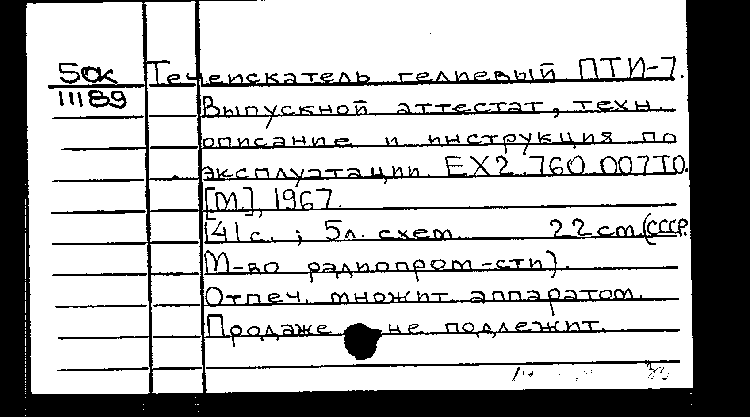 50к Течеискатель гелиевый ПТИ-7.
11189 Выпускной аттестат, техн.
описание и инструкция по
эксплуатации. ЕХ2.760.007ТО.
[М.], 1967.
141 с.; 5 л. схем. 22 см. (СССР.
М-во радиопром-сти).
Отпеч. множит. аппаратом.
Продаже не подлежит.